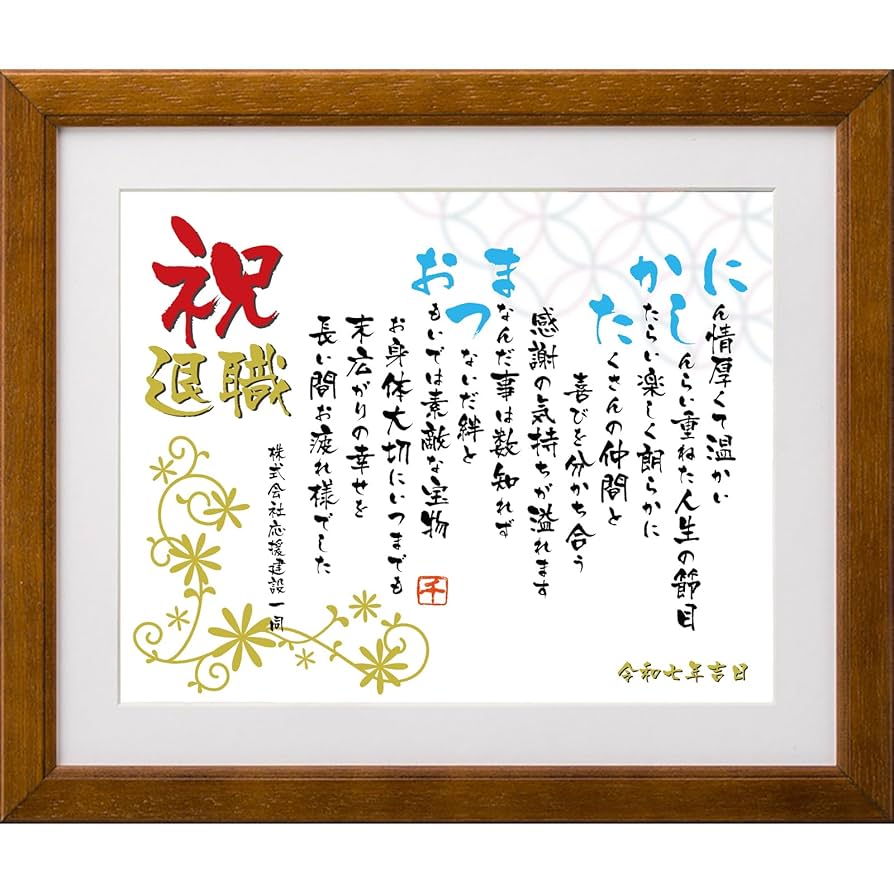 祝
退職
にん情厚くて温かい
しんらい重ねた人生の節目
かたらい楽しく朗らかに
たくさんの仲間と
喜びを分かち合う
感謝の気持ちが溢れます
まなんだ事は数知れず
つないだ絆と
おもいでは素敵な宝物
お身体大切にいつまでも
末広がりの幸せを
長い間お疲れ様でした
株式会社応援建設一同
千
令和七年吉日